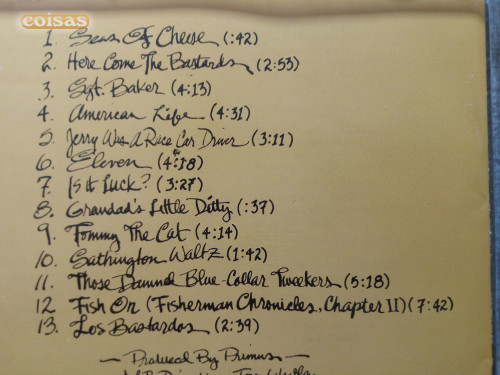 coisas
1. Seas Of Cheese (:42)
2. Here Come The Bastards (2:53)
3. Sgt. Baker (4:13)
4. American Life (4:31)
5. Jerry Was A Race Car Driver (3:11)
6. Eleven (4:18)
7. Is it Luck? (3:27)
8. Grandad's Little Ditty (:37)
9. Tommy The Cat (4:14)
10. Sathington Waltz (1:42)
11. Those Damned Blue-Collar Tweekers (5:18)
12. Fish On (Fisherman Chronicles, Chapter II) (7:42)
13. Los Bastardos (2:39)
— Produced By Primus —